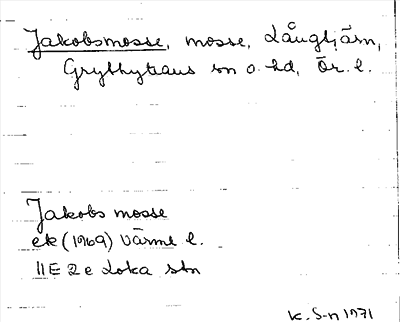 Jakobsmosse, mosse, Långtjärn,
Grythyttans sn o. hd, Ör. l.
Jakobs mosse
ek (1969) Värml l.
11E 2e Loka stn
K. S-n 1971